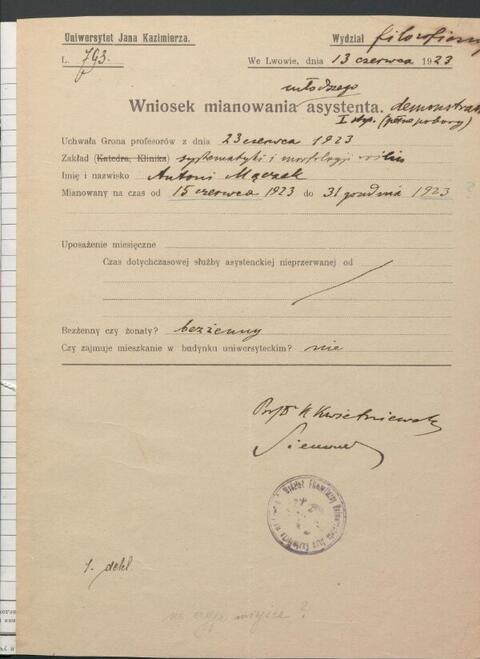 Uniwersytet Jana Kazimierza.
Wydział filozoficzny
L. 793.
We Lwowie, dnia 13 czerwca 1923
młodszego
Wniosek mianowania asystenta. demonstrat
I
Uchwała Grona profesorów z dnia 23 czerwca 1923
Zakład (Katedra, Klinika) systematyki i morfologji roślin
Imię i nazwisko Antoni Mączak
Mianowany na czas od 15 czerwca 1923 do 31 grudnia 1923 ?
Uposażenie miesięczne
Czas dotychczasowej służby asystenckiej nieprzerwanej od
Bezżenny czy żonaty? bezżenny
Czy zajmuje mieszkanie w budynku uniwersyteckim? nie
Kwietniewski
1. dekl.
miejsce ?